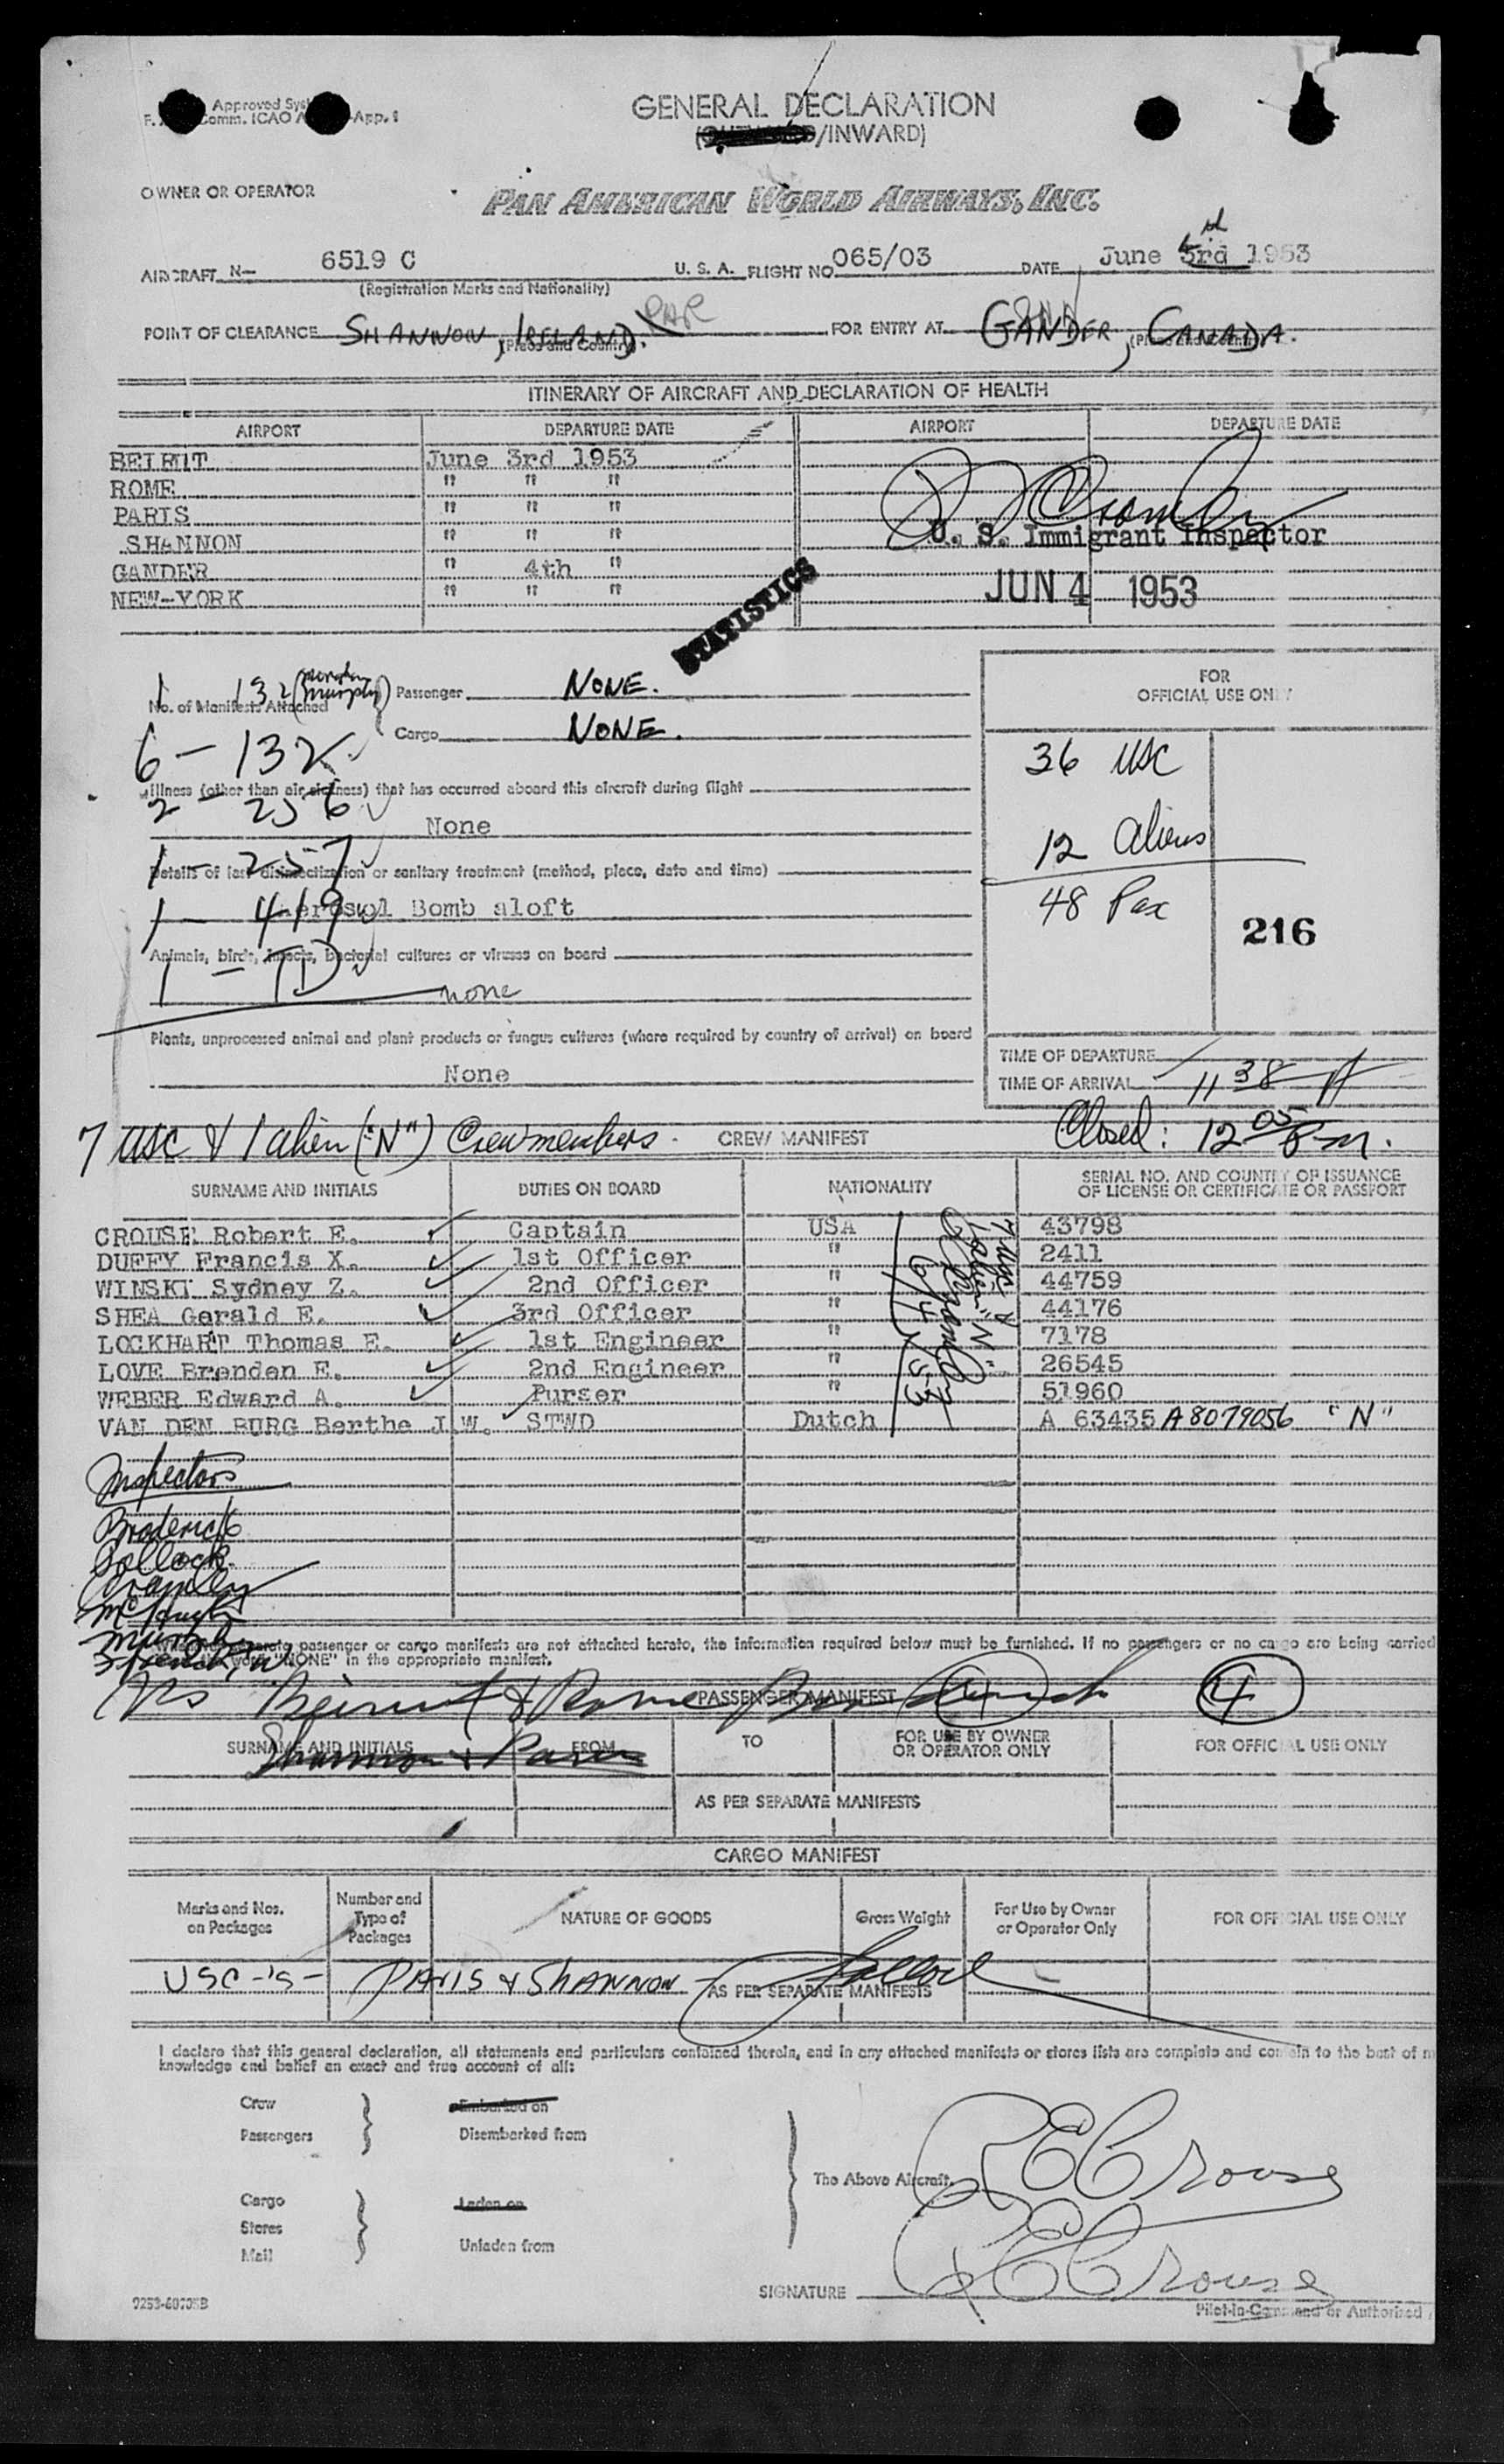 Approved Sys
F. Comm. ICAO A -App. 1
GENERAL DECLARATION
/INWARD)
OWNER OR OPERATOR
PAN AMERICAN WORLD AIRWAYS, INC.
AIRCRAFT N- 6519 C U. S. A. FLIGHT NO. 065/03 DATE June 3rd 1953
(Registration Marks and Nationality)
PAR
POINT OF CLEARANCE SHANNON, IRELAND. FOR ENTRY AT GANDER, CANADA.
(Place and Country)
ITINERARY OF AIRCRAFT AND DECLARATION OF HEALTH
AIRPORT DEPARTURE DATE AIRPORT DEPARTURE DATE
BEIRUT June 3rd 1953
ROME " " "
PARIS " " "
SHANNON " " "
U. S. Immigrant Inspector
GANDER " 4th "
NEW-YORK " " "
JUN 4 1953
STATISTICS
FOR
OFFICIAL USE ONLY
1 132 (Murphy)
No. of Manifests Attached
Passenger NONE.
Cargo NONE.
6 - 132
36 USC
Illness (other than air sickness) that has occurred aboard this aircraft during flight
2 - 256
None
12 Aliens
1 - 257
Details of last disinsectization or sanitary treatment (method, place, date and time)
48 Pax
1 - 419
Aerosol Bomb aloft
216
Animals, birds, insects, bacterial cultures or viruses on board
1 - TD
none
Plants, unprocessed animal and plant products or fungus cultures (where required by country of arrival) on board
None
TIME OF DEPARTURE
TIME OF ARRIVAL 11 38 A
7 USC & 1 alien ("N") Crewmembers - CREW MANIFEST Closed: 12 05 P.m.
SURNAME AND INITIALS DUTIES ON BOARD NATIONALITY SERIAL NO. AND COUNTRY OF ISSUANCE
OF LICENSE OR CERTIFICATE OR PASSPORT
CROUSE Robert E. Captain USA 43798
DUFFY Francis X. 1st Officer " 2411
WINSKI Sydney Z. 2nd Officer " 44759
SHEA Gerald E. 3rd Officer " 44176
LOCKHART Thomas E. 1st Engineer " 7178
LOVE Brenden E. 2nd Engineer " 26545
WEBER Edward A. Purser " 51960
VAN DEN BURG Berthe J.W. STWD Dutch A 63435 A8079056 "N"
7 USC &
1 alien "N"
6/4/53
Inspectors
Broderick
Pollock
Cromley
McHugh
Murphy
Where separate passenger or cargo manifests are not attached hereto, the information required below must be furnished. If no passengers or no cargo are being carried
the word "NONE" in the appropriate manifest.
Beirut & Rome 4
PASSENGER MANIFEST
SURNAME AND INITIALS FROM TO FOR USE BY OWNER
OR OPERATOR ONLY FOR OFFICIAL USE ONLY
Shannon & Paris
AS PER SEPARATE MANIFESTS
CARGO MANIFEST
Marks and Nos.
on Packages
Number and
Type of
Packages
NATURE OF GOODS
Gross Weight
For Use by Owner
or Operator Only
FOR OFFICIAL USE ONLY
USC-'s - PARIS & SHANNON - Pollock
AS PER SEPARATE MANIFESTS
I declare that this general declaration, all statements and particulars contained therein, and in any attached manifests or stores lists are complete and contain to the best of m
knowledge and belief an exact and true account of all:
Crew
Passengers
Embarked on
Disembarked from
The Above Aircraft.
R E Crouse
Cargo
Stores
Mail
Laden on
Unladen from
SIGNATURE R E Crouse
Pilot-in-Command or Authorized
0253-60705B